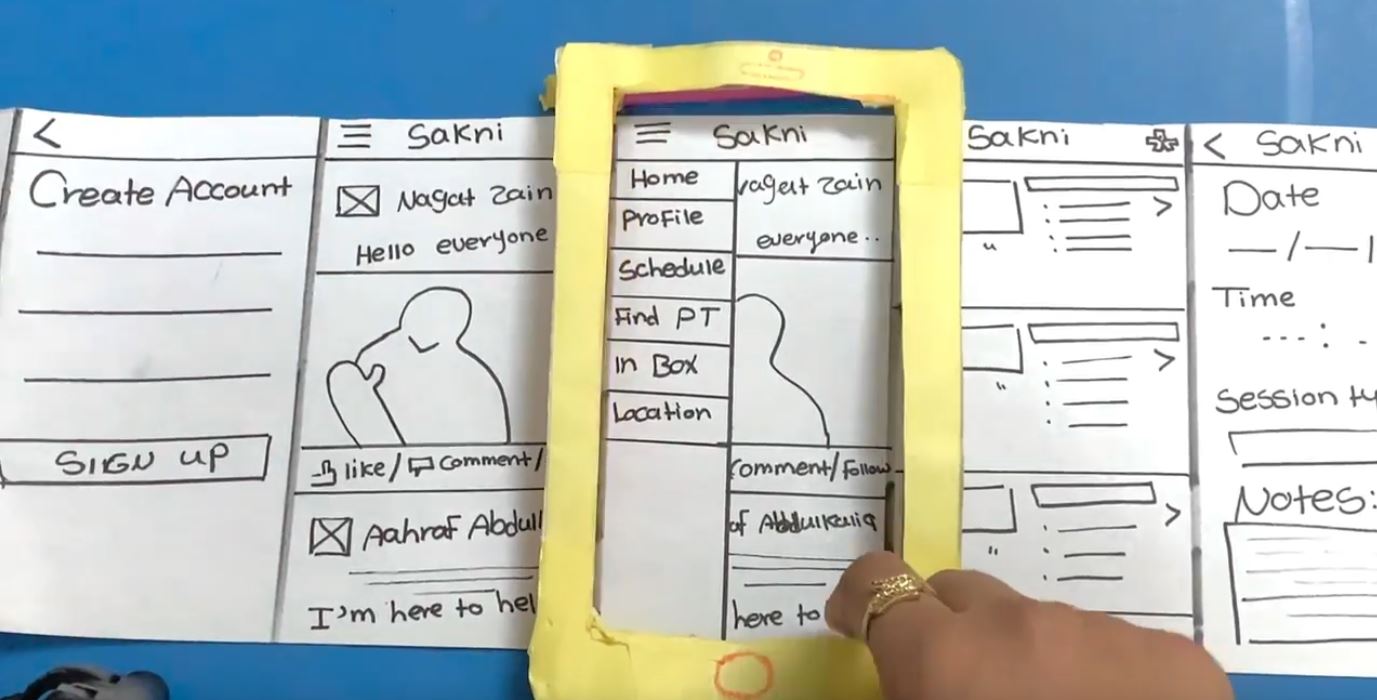 <
Create Account
SIIGN UP
Sakni
Nagat Zain
Hello everyone
like/ Comment/
Aahraf Abdull
I'm here to hel
Sakni
Home
Profile
Schedule
Find PT
In Box
Location
agat Zain
everyone..
Comment/Follow
af Abdulkaliq
here to
Sakni
< Sakni
Date
—/—/
Time
---: -
Session ty
Notes: